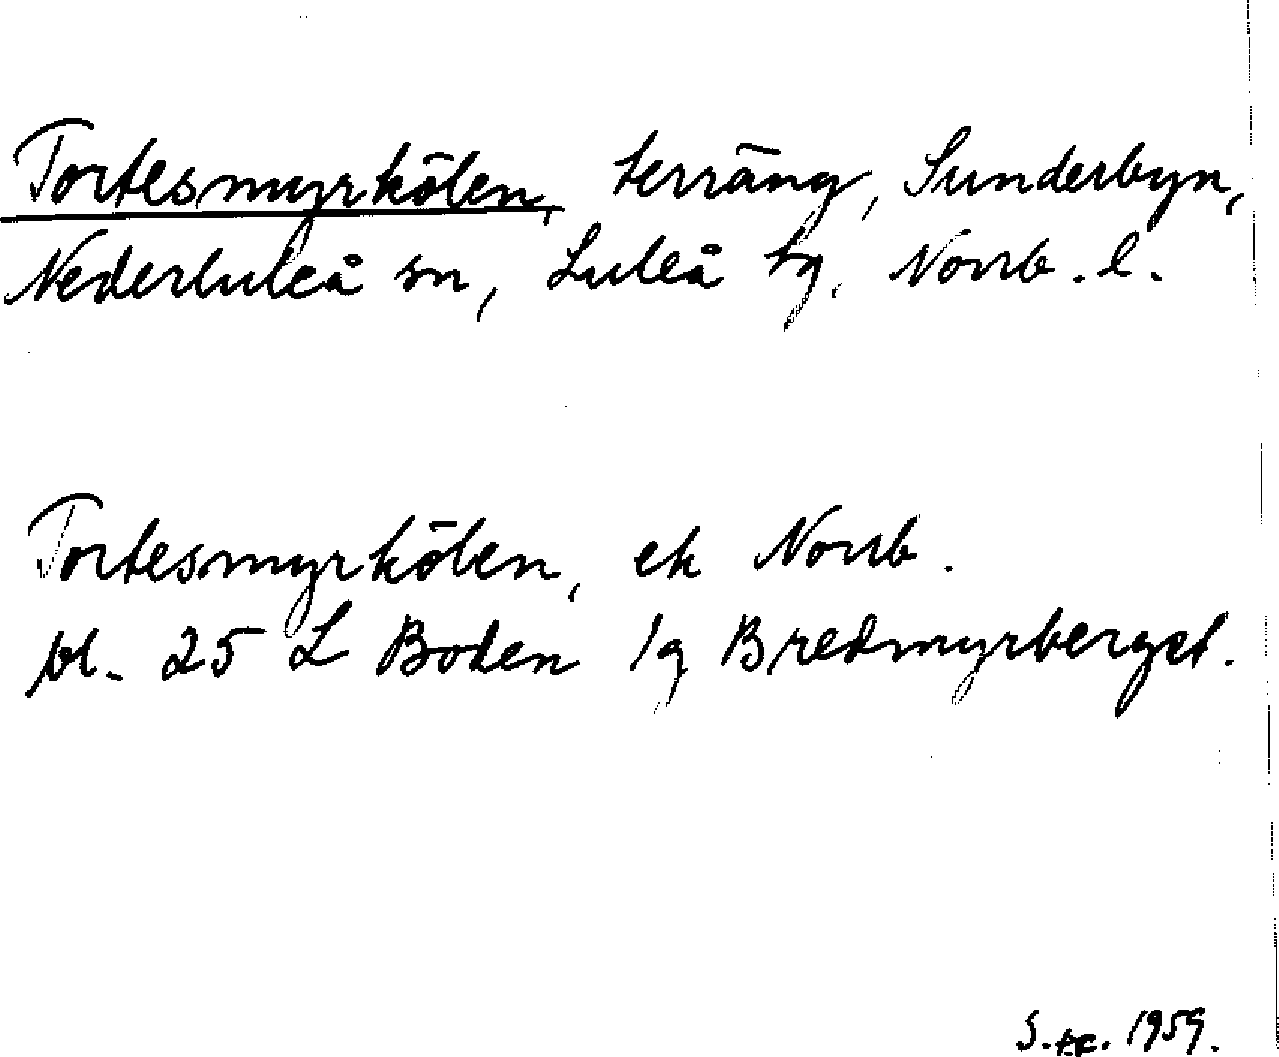 Tortesmyrkölen, terräng, Sunderbyn,
Nederluleå sn, Luleå tg, Norrb. l.
Tortesmyrkölen, ek Norrb.
bl. 25 L Boden 1g Bredmyrberget.
1959.